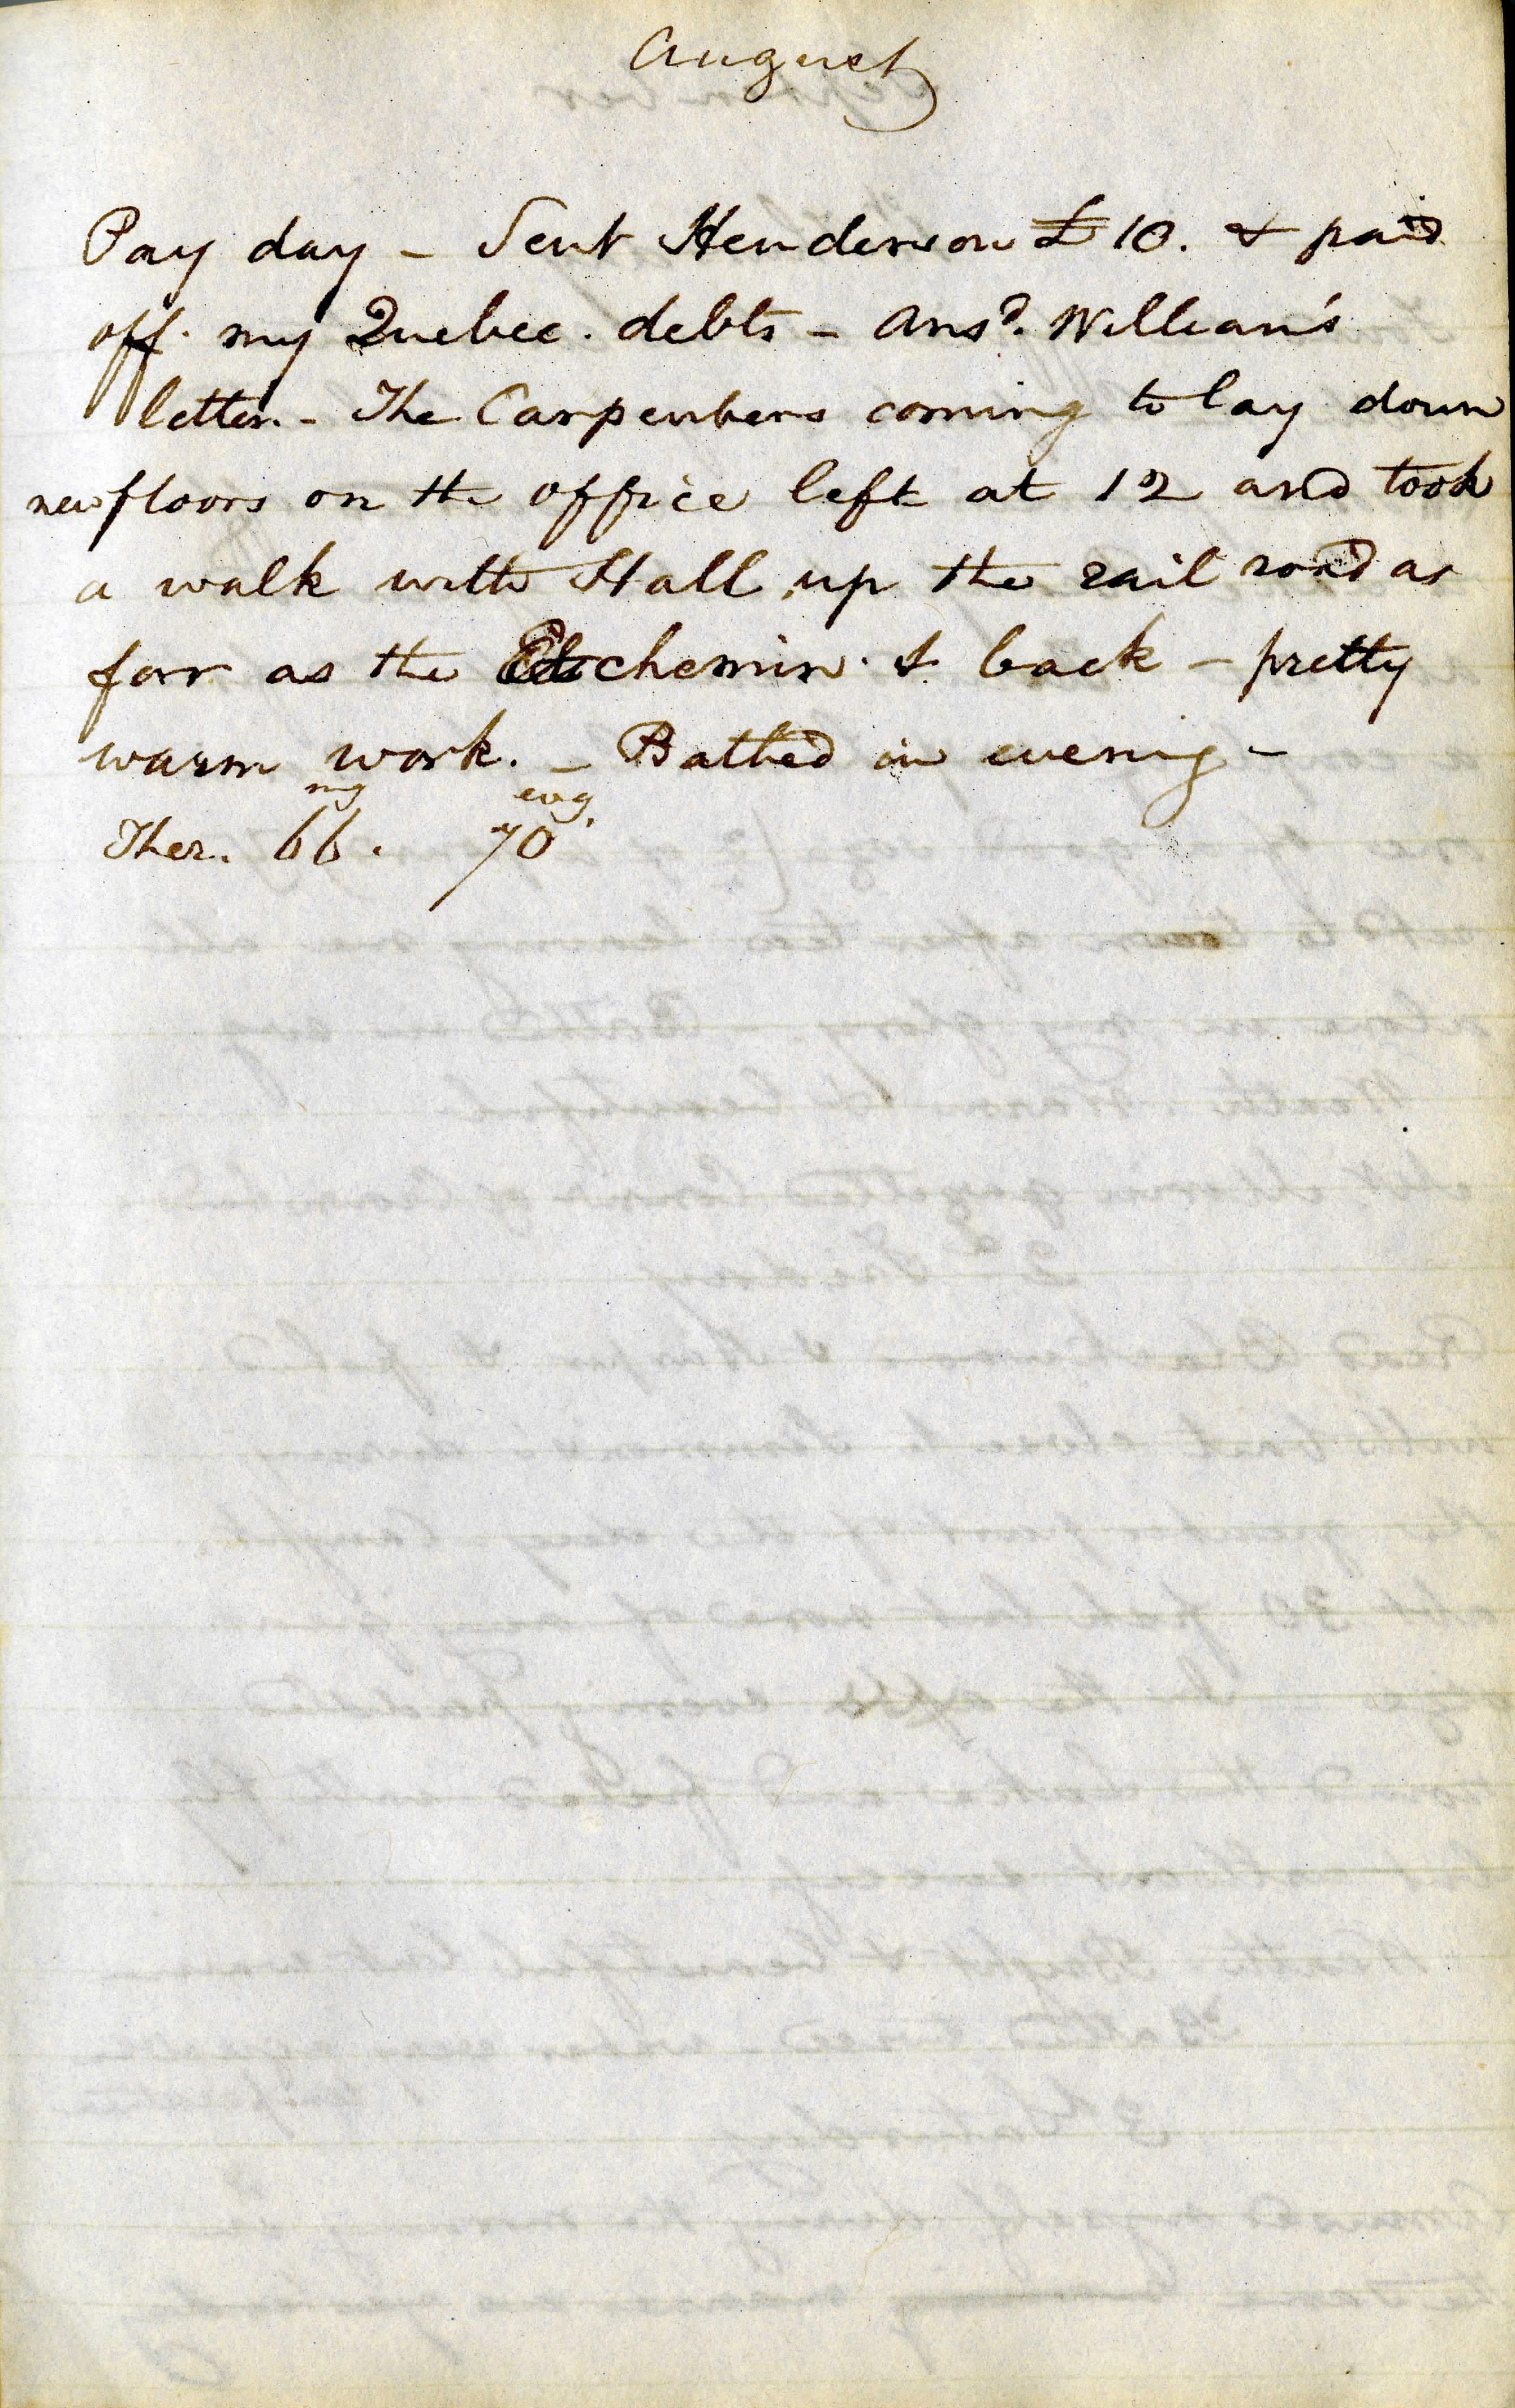 August
Pay day - Sent Henderson £10. & paid
off. my Quebec. debts - Ansd. William's
letter. - The Carpenters coming to lay down
new floors on the office left at 12 and took
a walk with Hall up the rail road as
far as the Etchemin. & back - pretty
warm work. - Bathed in evening -
mg evg
Ther. 66. 70